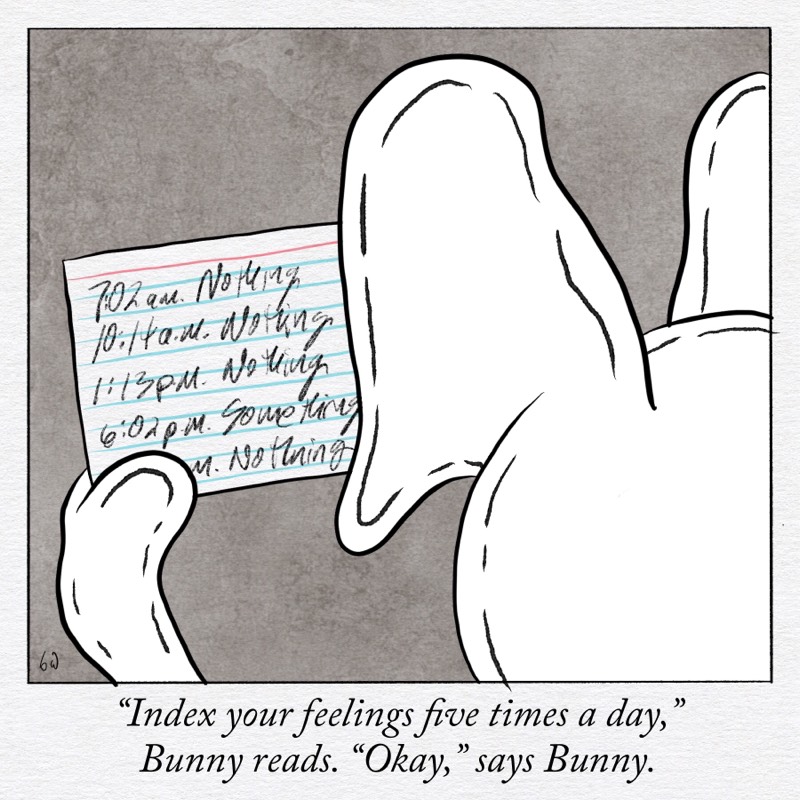 7:02 a.m. Nothing
10:14 a.m. Nothing
1:13 p.m. Nothing
6:02 p.m. Something
m. Nothing
bw
“Index your feelings five times a day,”
Bunny reads. “Okay,” says Bunny.